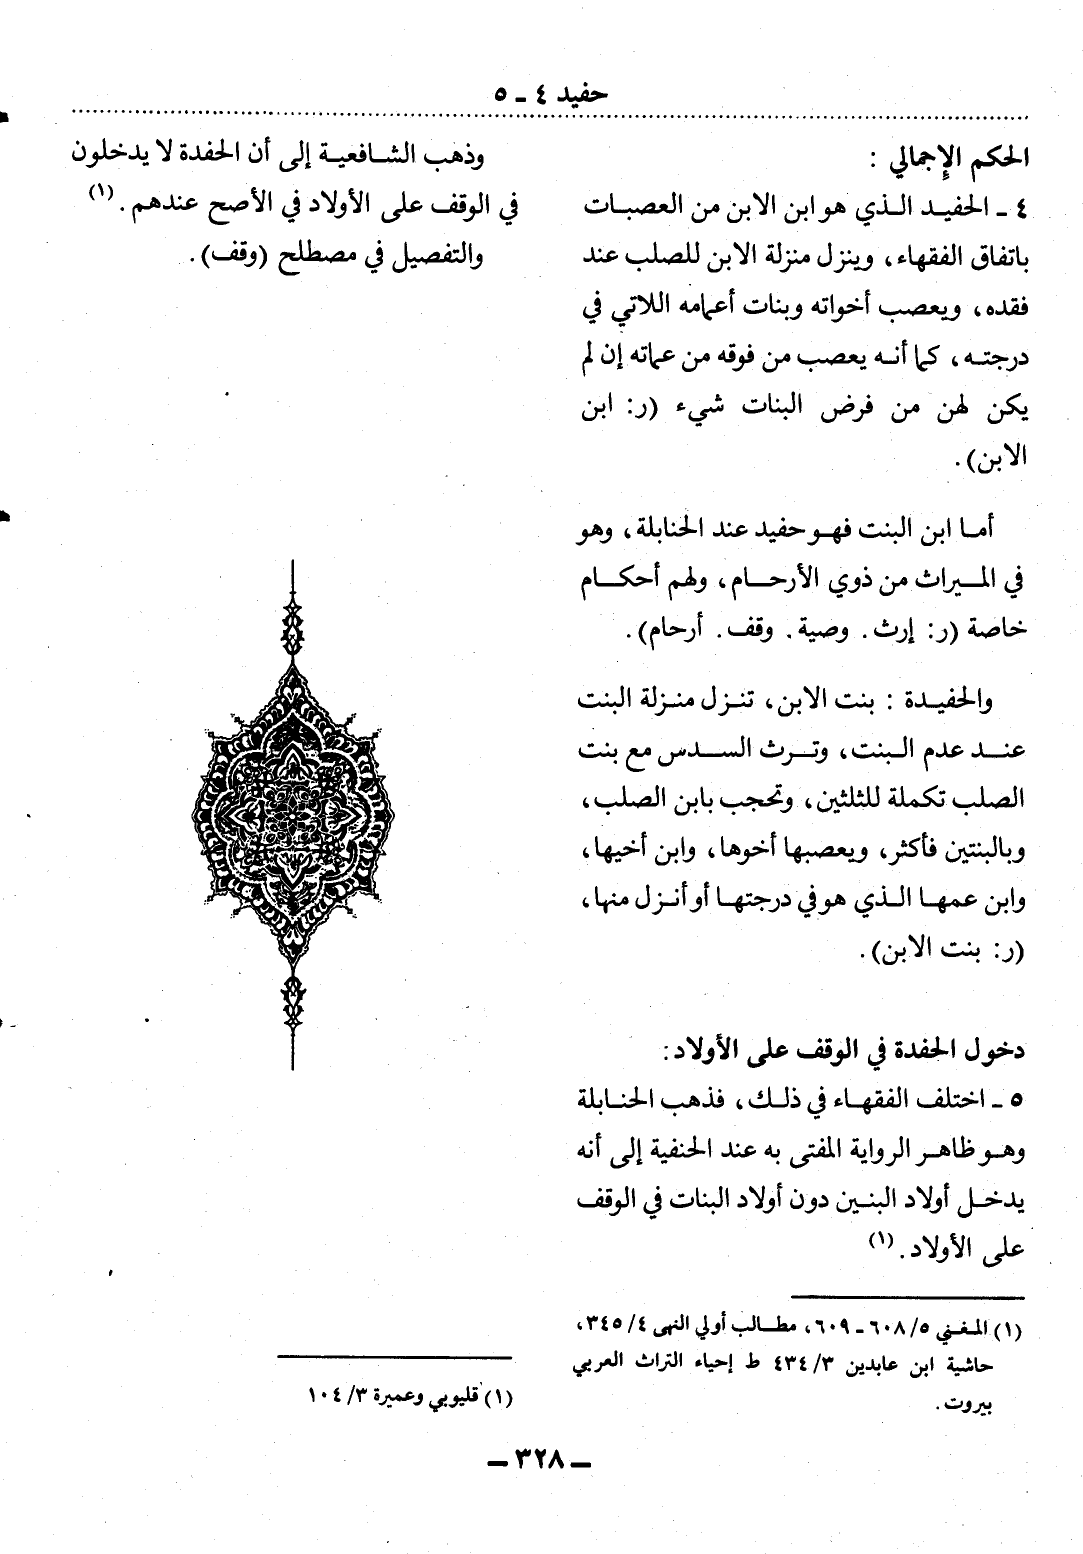 حفيد ٤ - ٥
الحكم الإجمالي :
٤ - الحفيد الذي هو ابن الابن من العصبات
باتفاق الفقهاء، وينزل منزلة الابن للصلب عند
فقده، ويعصب أخواته وبنات أعمامه اللاتي في
درجته، كما أنه يعصب من فوقه من عماته إن لم
يكن لهن من فرض البنات شيء (ر: ابن
الابن).
أما ابن البنت فهو حفيد عند الحنابلة، وهو
في الميراث من ذوي الأرحام، ولهم أحكام
خاصة (ر: إرث. وصية. وقف. أرحام).
والحفيدة : بنت الابن، تنزل منزلة البنت
عند عدم البنت، وترث السدس مع بنت
الصلب تكملة للثلثين، وتحجب بابن الصلب،
وبالبنتين فأكثر، ويعصبها أخوها، وابن أخيها،
وابن عمها الذي هو في درجتها أو أنزل منها،
(ر: بنت الابن).
دخول الحفدة في الوقف على الأولاد:
٥ - اختلف الفقهاء في ذلك، فذهب الحنابلة
وهو ظاهر الرواية المفتى به عند الحنفية إلى أنه
يدخل أولاد البنين دون أولاد البنات في الوقف
على الأولاد. (١)
(١) المغني ٥/ ٦٠٨ - ٦٠٩، مطالب أولي النهى ٤/ ٣٤٥،
حاشية ابن عابدين ٣/ ٤٣٤ ط إحياء التراث العربي
بيروت.
وذهب الشافعية إلى أن الحفدة لا يدخلون
في الوقف على الأولاد في الأصح عندهم. (١)
والتفصيل في مصطلح (وقف).
(١) قليوبي وعميرة ٣/ ١٠٤
- ٣٢٨ -